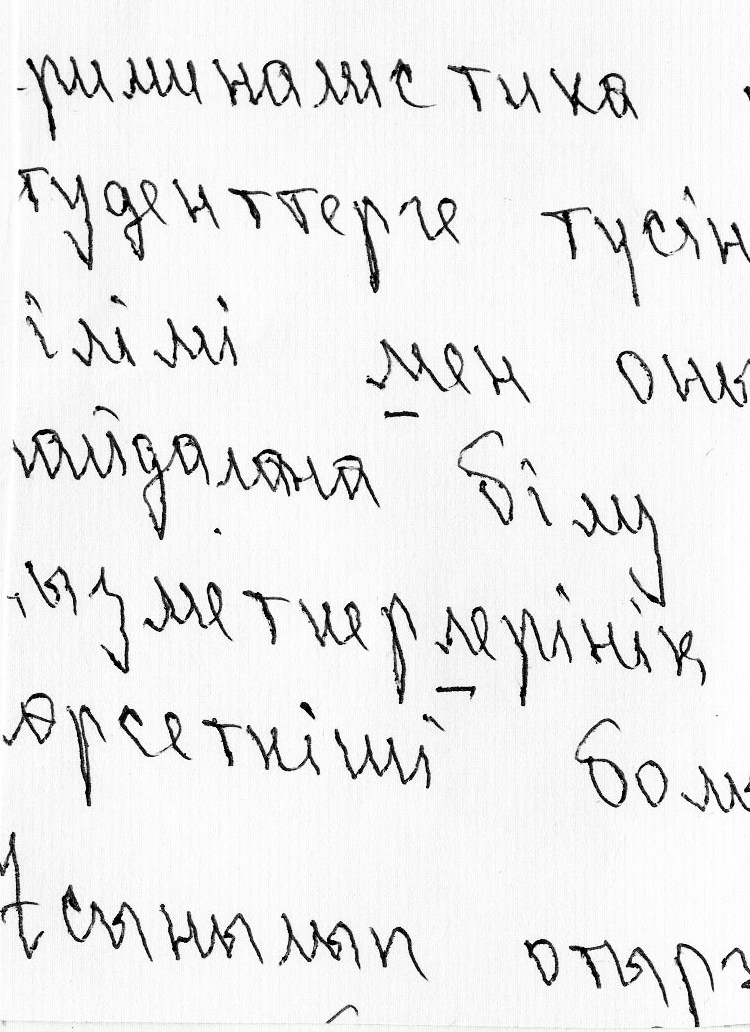 риминалистика
туденттерге түсін
ілімі мен оны
айдалана білу
ызметкерлерінің
өрсеткіші болы
Ұсынылып отырғ